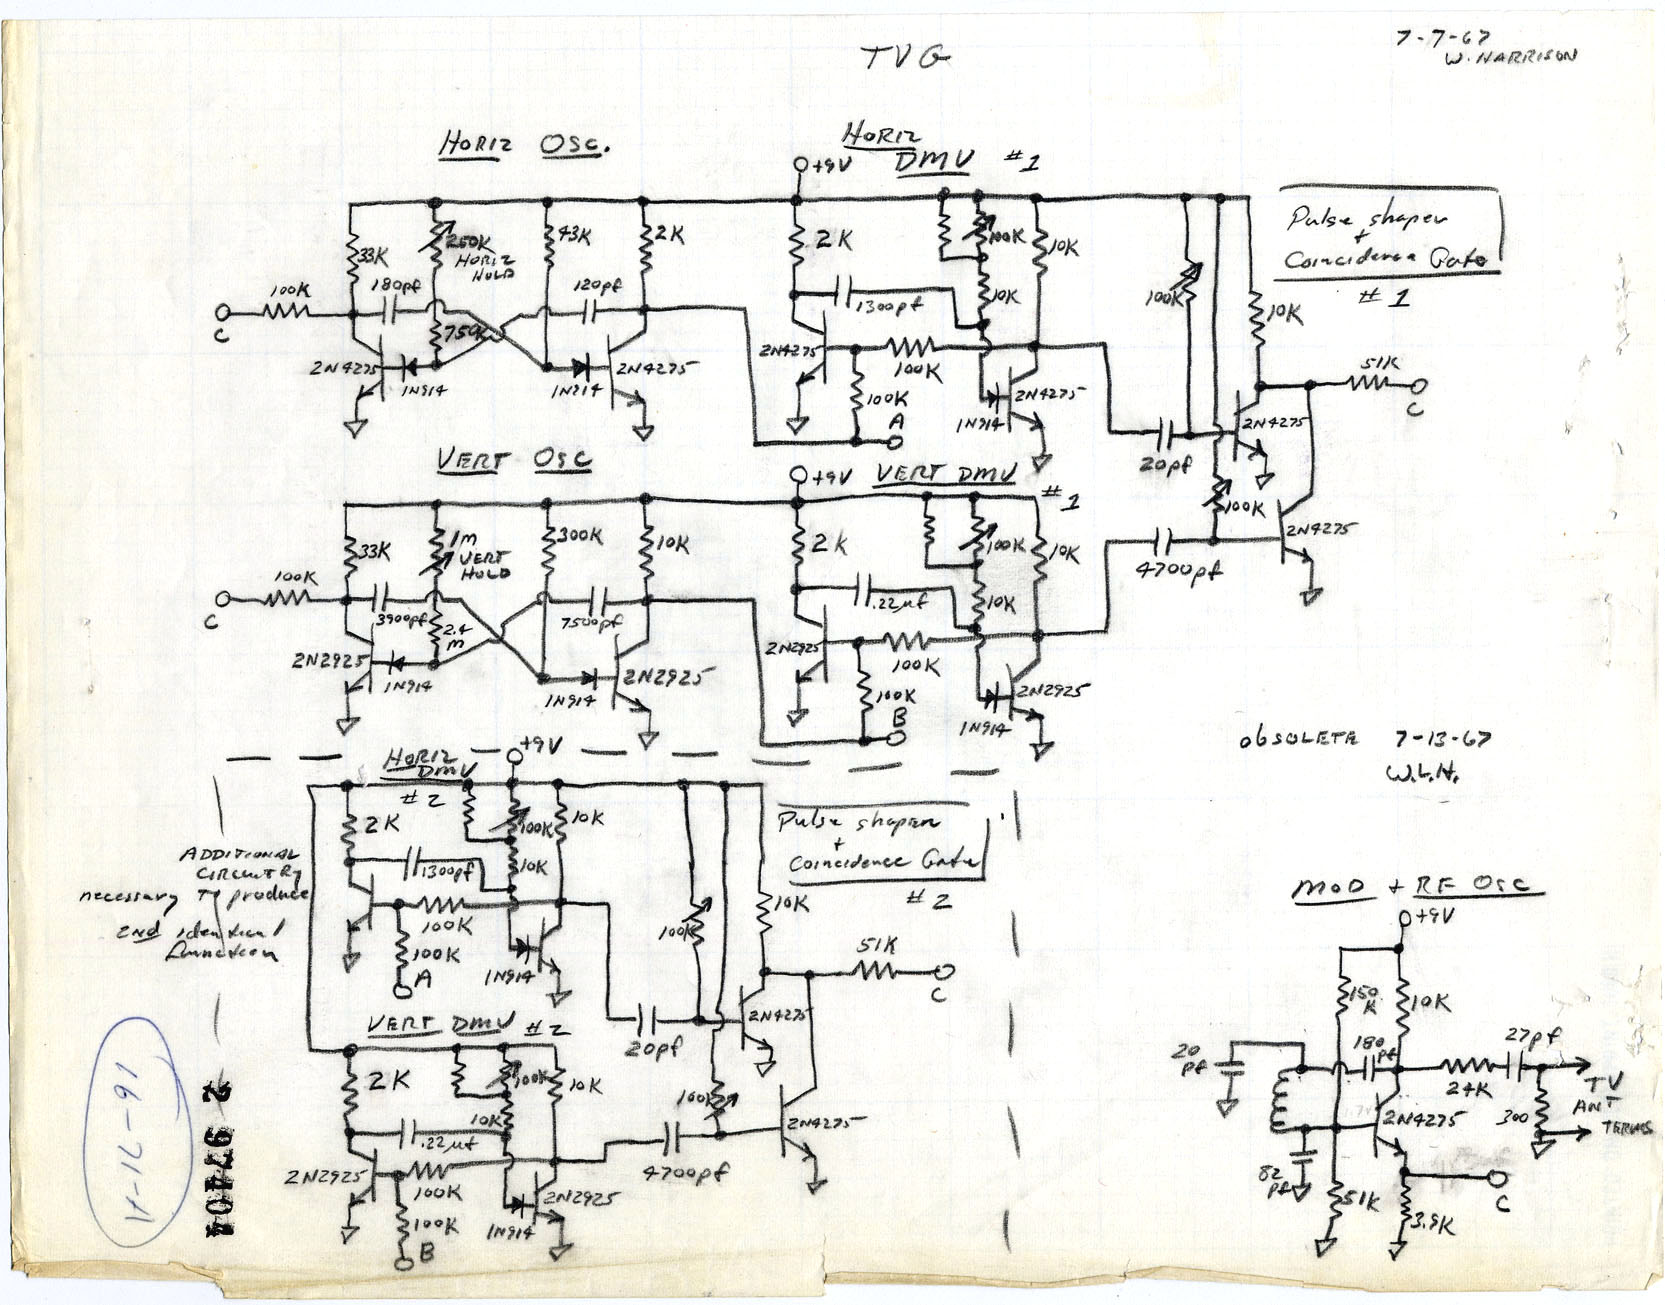 TVG
7-7-67
W. HARRISON
HORIZ OSC.
HORIZ
DMV #1
+9V
33K
250K
HORIZ
HOLD
43K
2K
2K
100K
10K
100K
10K
Pulse shaper
+
Coincidence Gate
#1
C
100K
180pf
750K
120pf
1300pf
10K
2N4275
1N914
1N914
2N4275
2N4275
100K
100K
A
1N914
2N4275
20pf
2N4275
51K
C
100K
2N4275
VERT OSC
+9V
VERT DMV
#1
33K
1M
VERT
HOLD
300K
10K
2K
100K
10K
4700pf
C
100K
3900pf
2.4
M
7500pf
.22µf
10K
2N2925
1N914
1N914
2N2925
2N2925
100K
100K
B
1N914
2N2925
obsolete 7-13-67
W.L.H.
HORIZ
DMV
#2
+9V
2K
100K
10K
Pulse shaper
+
Coincidence Gate
#2
ADDITIONAL
CIRCUITRY
necessary to produce
2nd identical
function
1300pf
10K
100K
100K
A
1N914
100K
10K
51K
C
20pf
2N4275
VERT DMV #2
2K
100K
10K
.22µf
10K
100K
2N4275
4700pf
2N2925
100K
100K
B
1N914
2N2925
MOD + RF OSC
+9V
150
K
10K
20
pf
180
pf
27pf
24K
TV
ANT
TERMS
300
2N4275
82
pf
51K
3.9K
C
V-1L-91
2 97404